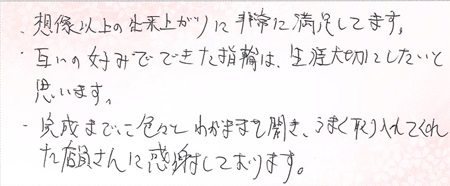 ・想像以上の出来上がりに非常に満足してます。
・互いの好みでできた指輪は、生涯大切にしたいと
思います。
・完成までに色々とわがままを聞き、うまく取り入れてくれ
た店員さんに感謝しております。